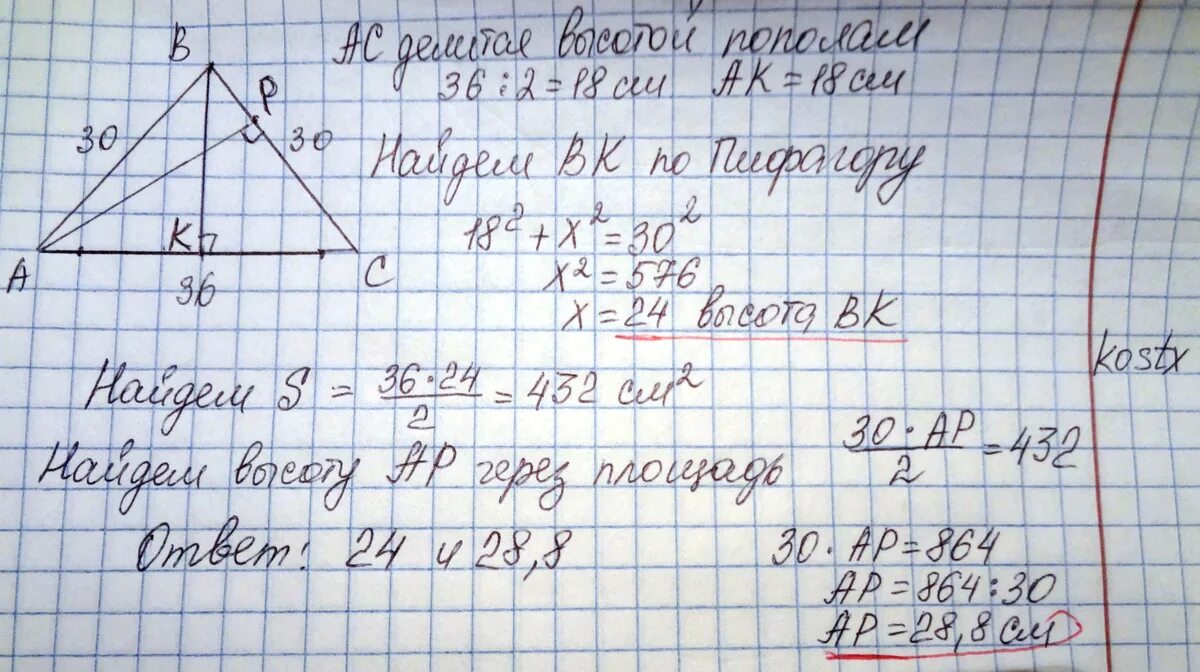 B
P
30
30
K
A
36
C
AC делится высотой пополам
36 : 2 = 18 см AK = 18 см
Найдем BK по Пифагору
18² + x² = 30²
x² = 576
x = 24 высота BK
kostx
Найдем S = 36·24/2 = 432 см²
Найдем высоту AP через площадь
30·AP/2 = 432
Ответ: 24 и 28,8
30 · AP = 864
AP = 864 : 30
AP = 28,8 см